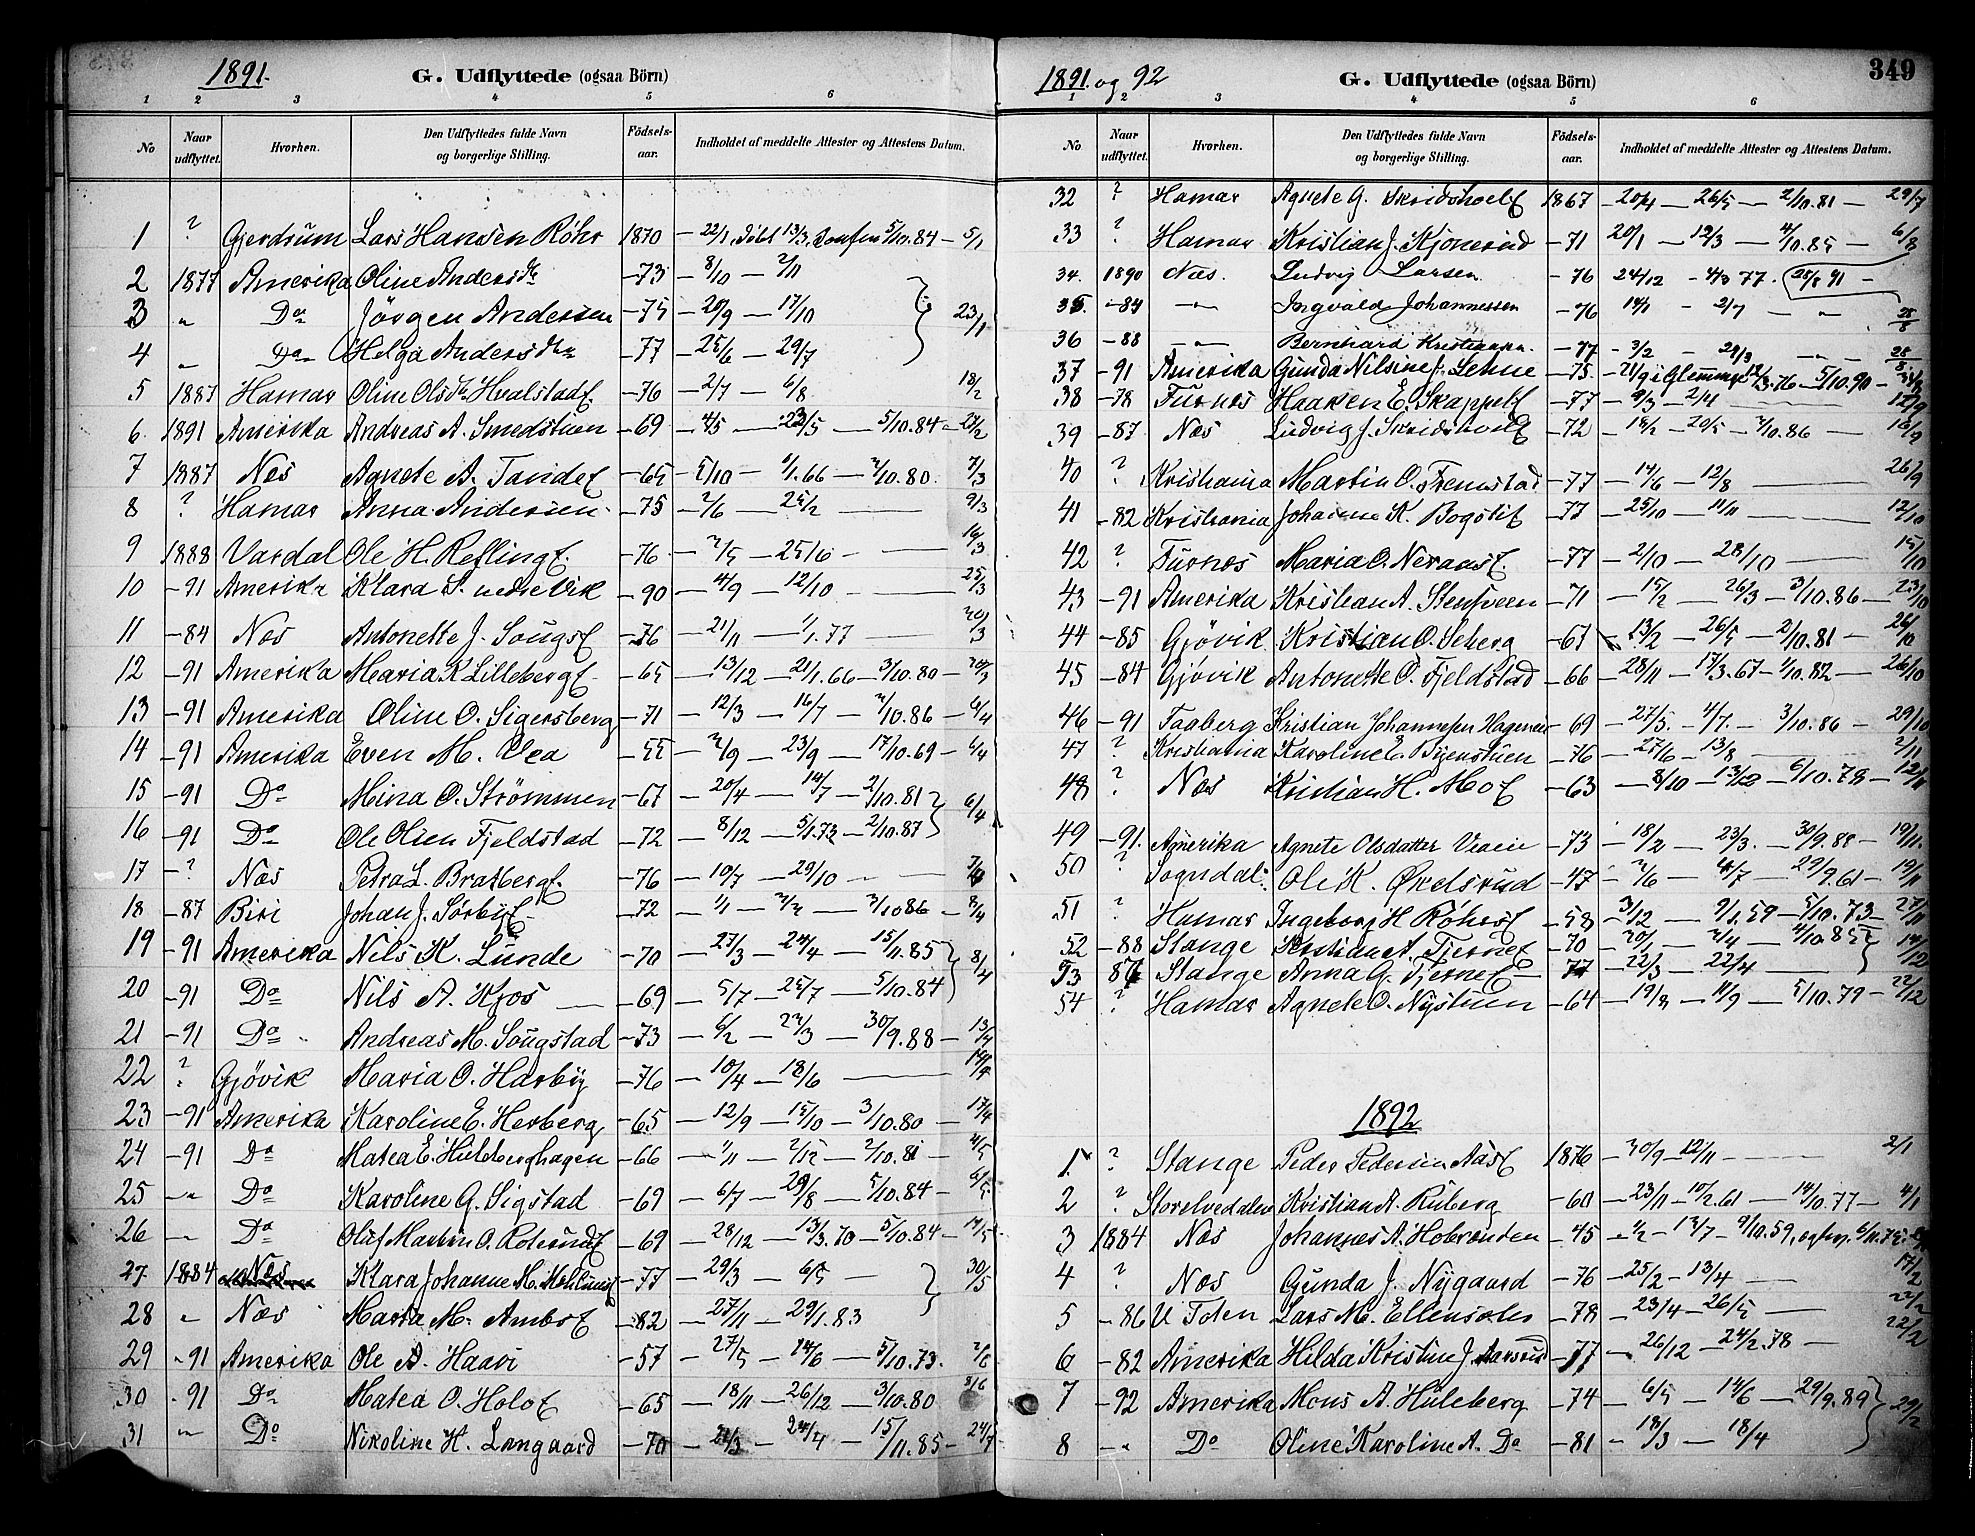 1891.
G. Udflyttede (ogsaa Börn)
1 2 3 4 5 6
No Naar udflyttet. Hvorhen. Den Udflyttedes fulde Navn og borgerlige Stilling. Födsels-aar. Indholdet af meddelte Attester og Attestens Datum.
1 ? Gjerdrum Lars Hansen Röhr 1870 – 22/1, döbt 13/3, Confen 5/10.84 – 5/1
2 1877 Amerika Oline Andersdr – 73 – 8/10 – 2/11
3 „ Do Jörgen Andersen – 75 – 20/9 – 17/10 } 23/1
4 „ Do Helga Andersdr – 77 – 25/6 – 29/7
5 1887 Hamar Oline Olsdr Hvalstade. – 76 – 2/7 – 6/8 18/2
6 1891 Amerika Andreas A. Smedstuen – 69 – 4/5 – 23/5 – 5/10.84 – 27/2
7 1887 Næs Agnete A. Tande – 65 – 5/10 – 1/1.66 – 3/10.80 7/3
8 ? Hamar Anna Andersen – 75 – 2/6 – 25/2 — 9/3
9 1888 Vardal Ole H. Refling – 76 – 2/5 – 25/6 – — 19/3
10 – 91 Amerika Klara S. nedre Vik – 90 – 4/9 – 12/10 — 25/3
11 – 84 Næs Antonette J. Sougs – 76 – 21/11 – 1/1.77 — 20/3
12 – 91 Amerika Maria K Lilleberg – 65 – 13/12 – 21/1.66 – 3/10.80 – 20/3
13 – 91 Amerika Oline O. Sigersberg – 71 – 12/3 – 16/7 – 2/10.86 – 6/4
14 – 91 Amerika Even M. Vea – 55 – 2/9 – 23/9 – 17/10.69 – 6/4
15 – 91 Do Mina O. Strömmen – 67 – 20/4 – 14/7 – 2/10.81 } 6/4
16 – 91 Do Ole Olsen Fjeldstad – 72 – 8/12 – 5/1.73 – 2/10.87
17 – ? Næs Petra L. Bratberg – 76 – 10/7 – 29/10 – —
18 – 87 Biri Johan J. Sörby – 72 – 1/1 – – 3/10 86 – 8/4
19 – 91 Amerika Nils K. Lunde – 70 – 27/3 – 24/4 – 15/11.85 } 8/4
20 – 91 Do Nils A. Kjos – 69 – 5/7 – 25/7 – 5/10.84
21 – 91 Do Andreas M. Sougstad – 73 – 6/2 – 23/3 – 30/9.88 – 13/4
22 ? Gjövik Maria O. Harby – 76 – 10/4 – 18/6 —
23 – 91 Amerika Karoline E. Herberg – 65 – 12/9 – 15/10 – 3/10.80 – 17/4
24 – 91 Do Matea E. Huleberghagen – 66 – 1/11 – 2/12 – 2/10.81 – 4/5
25 – „ Do Karoline G. Sigstad – 69 – 6/7 – 29/8 – 5/10.84 –
26 – „ Do Oluf Martin O. Roterud – 69 – 28/12 – 13/3.70 – 5/10.84 – 14/5
27. 1884 Næs Klara Johanne M. – 77 – 29/3 – 6/5 – } 30/5
28 „ Næs Marta M. Ambs – 82 – 27/11 – 29/1.83
29 „ 91 Amerika Ole A. Haavi – 57 – 27/5 – 14/6 – 5/10.73. 2/6
30 – 91 Do Matea O. Holo – 65 – 18/11 – 26/12 – 3/10.80 8/6
31 „ Do Nikoline H. Langaard – 70 – 21/3 – 24/4 – 15/11.85 – 24/7
1891. og 92
G. Udflyttede (ogsaa Börn)
349
1 2 3 4 5 6
No Naar udflyttet. Hvorhen. Den Udflyttedes fulde Navn og borgerlige Stilling. Födsels-aar. Indholdet af meddelte Attester og Attestens Datum.
32 ? Hamar Agnete G. Skridshol 1867 – 20/4 – 26/5 – 2/10.81 – 29/7
33 ? Hamar Kristian J. Kjonerud – 71 20/1 – 12/3 – 4/10.85 – 6/8
34. 1890 Næs. Ludvig Larsen – 76 24/12 – 4/3 77. 25/8 91 –
35. – 84 – „ – Ingvald Johannessen – 76 14/1 – 2/7 – – „ – 28/8
36 – 88 – „ – Bernhard Kristiansen – 77 – 3/2 – 29/3 – „ – 28/8
37 – 91 Amerika Gunda Nilsine J. Lehne – 75 – 21/9 i Glemminge 12/3.76 – 5/10.90 –
38 – 78 Furnes Haaken E. Skappel – 77 – 9/3 – 2/4 — 12/9
39 – 87 Næs Ludvig J. Skridshol – 72 – 15/2 – 20/5 – 2/10.86 – 16/9
40 ? Kristiania Martin O. Fremstad – 77 – 14/6 – 12/8 — 26/9
41 – 82 Kristiania Johanne K. Bogsti – 77 – 25/10 – 11/11 — 12/10
42 ? Furnes Maria O. Nerans – 77 – 2/10 – 28/10 — 15/10
43 – 91 Amerika Kristian A. Stensveen – 71 – 15/2 – 26/3 – 3/10.86 – 23/10
44 – 85 Gjövik Kristian O. Seberg – 67 – 13/2 – 26/5 – 2/10.81 – 26/10
45 – 84 Gjövik Antonette O. Fjeldstad – 66 – 28/11 – 17/3.67 – 1/10.82 – 26/10
46 – 91 Faaberg Kristian Johannessen Hagen – 69 – 27/5. – 4/7. – 3/10.86 – 29/10
47 ? Kristiania Karoline E. Bjenstuen – 76 – 27/6 – 13/8 — 2/11
48 ? Næs Kristian H. Mo – 63 – 8/10 – 13/12 – 6/10.78 – 12/11
49 – 91. Amerika Agnete Olsdatter Veaen – 73 – 18/2 – 23/3. – 30/9.88 – 19/11.
50 ? Sogndal. Ole K. Økelsrud – 47 – 2/6 – 4/7 – 29/9.61 – 19/11
51 ? Hamar Ingeborg H Röhr – 58 – 3/12 – 9/1.59 – 5/10.73 – 27/11
52 – 88 Stange Kristian A. Tjerne – 70 – 20/1 – 2/4 – 4/10.85 } 14/12
53 86 Stange Anna G. Tjerne – 77 – 22/3 – 22/4 —
54 ? Hamar Agnete O. Nystuen – 64 – 19/8 – 11/9 – 5/10.79 – 22/12
1892
1. ? Stange Peder Pedersen Aas 1876 – 30/9 – 12/11 — 2/1
2 ? Storelvedalen Kristian A. Ruberg – 60 – 23/11 – 10/2.61 – 14/10.77 – 4/1
3 1884 Næs Johannes A. Hobrenden – 45 – 1/2 – 13/7 – 9/10.59,
4 ? Næs Gunda J. Nygaard – 76 – 25/2 – 13/4 — 17/2
5 – 86 V. Toten Lars M. Ellensoler – 78 – 23/4 – 26/5 — 22/2
6 – 82 Amerika Hilda Kristine J. Aarsrud – 77 – 26/12 – 24/2.78 – 22/2
7 – 92 Amerika Mons A. Huleberg – 74 – 6/5 – 14/6 – 29/9.89 } 29/2
8 – „ Do Oline Karoline A. Do – 81 – 18/3 – 18/4